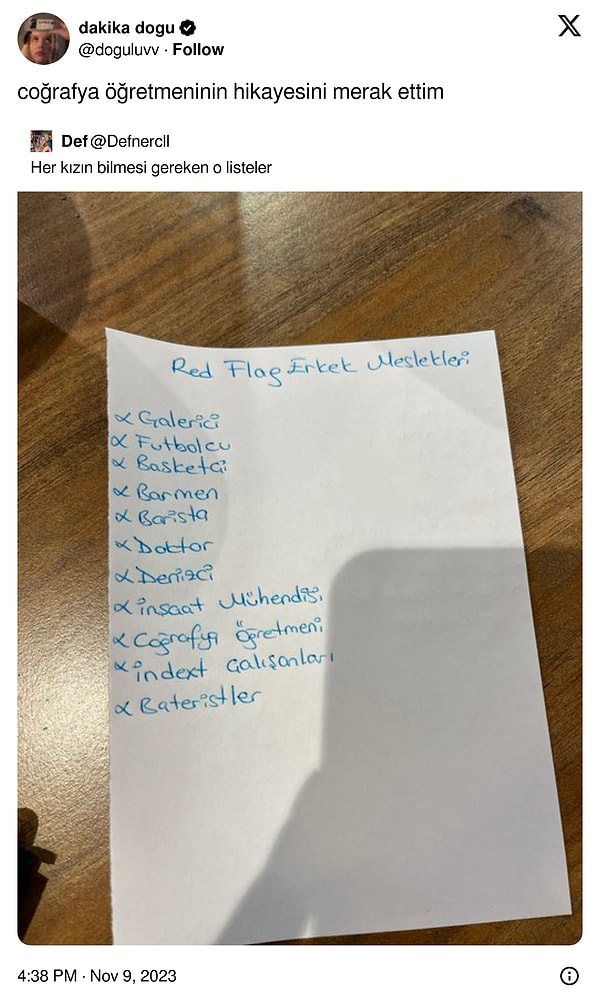 dakika dogu
@doguluvv · Follow
coğrafya öğretmeninin hikayesini merak ettim
Def @Defnercll
Her kızın bilmesi gereken o listeler
Red Flag Erkek Meslekleri
Galerici
Futbolcu
Basketci
Barmen
Barista
Doktor
Denizci
inşaat Mühendisi
Coğrafya Öğretmeni
indext Çalışanları
Bateristler
4:38 PM · Nov 9, 2023